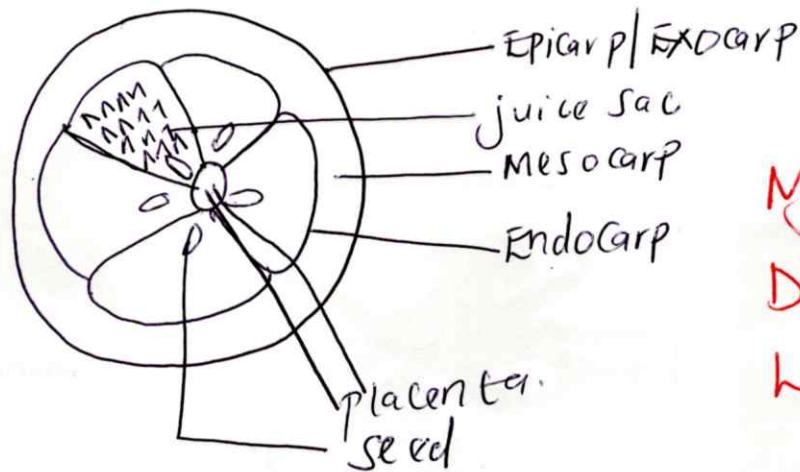 Epicarp/Exocarp
juice sac
Mesocarp
Endocarp
placenta.
seed
D